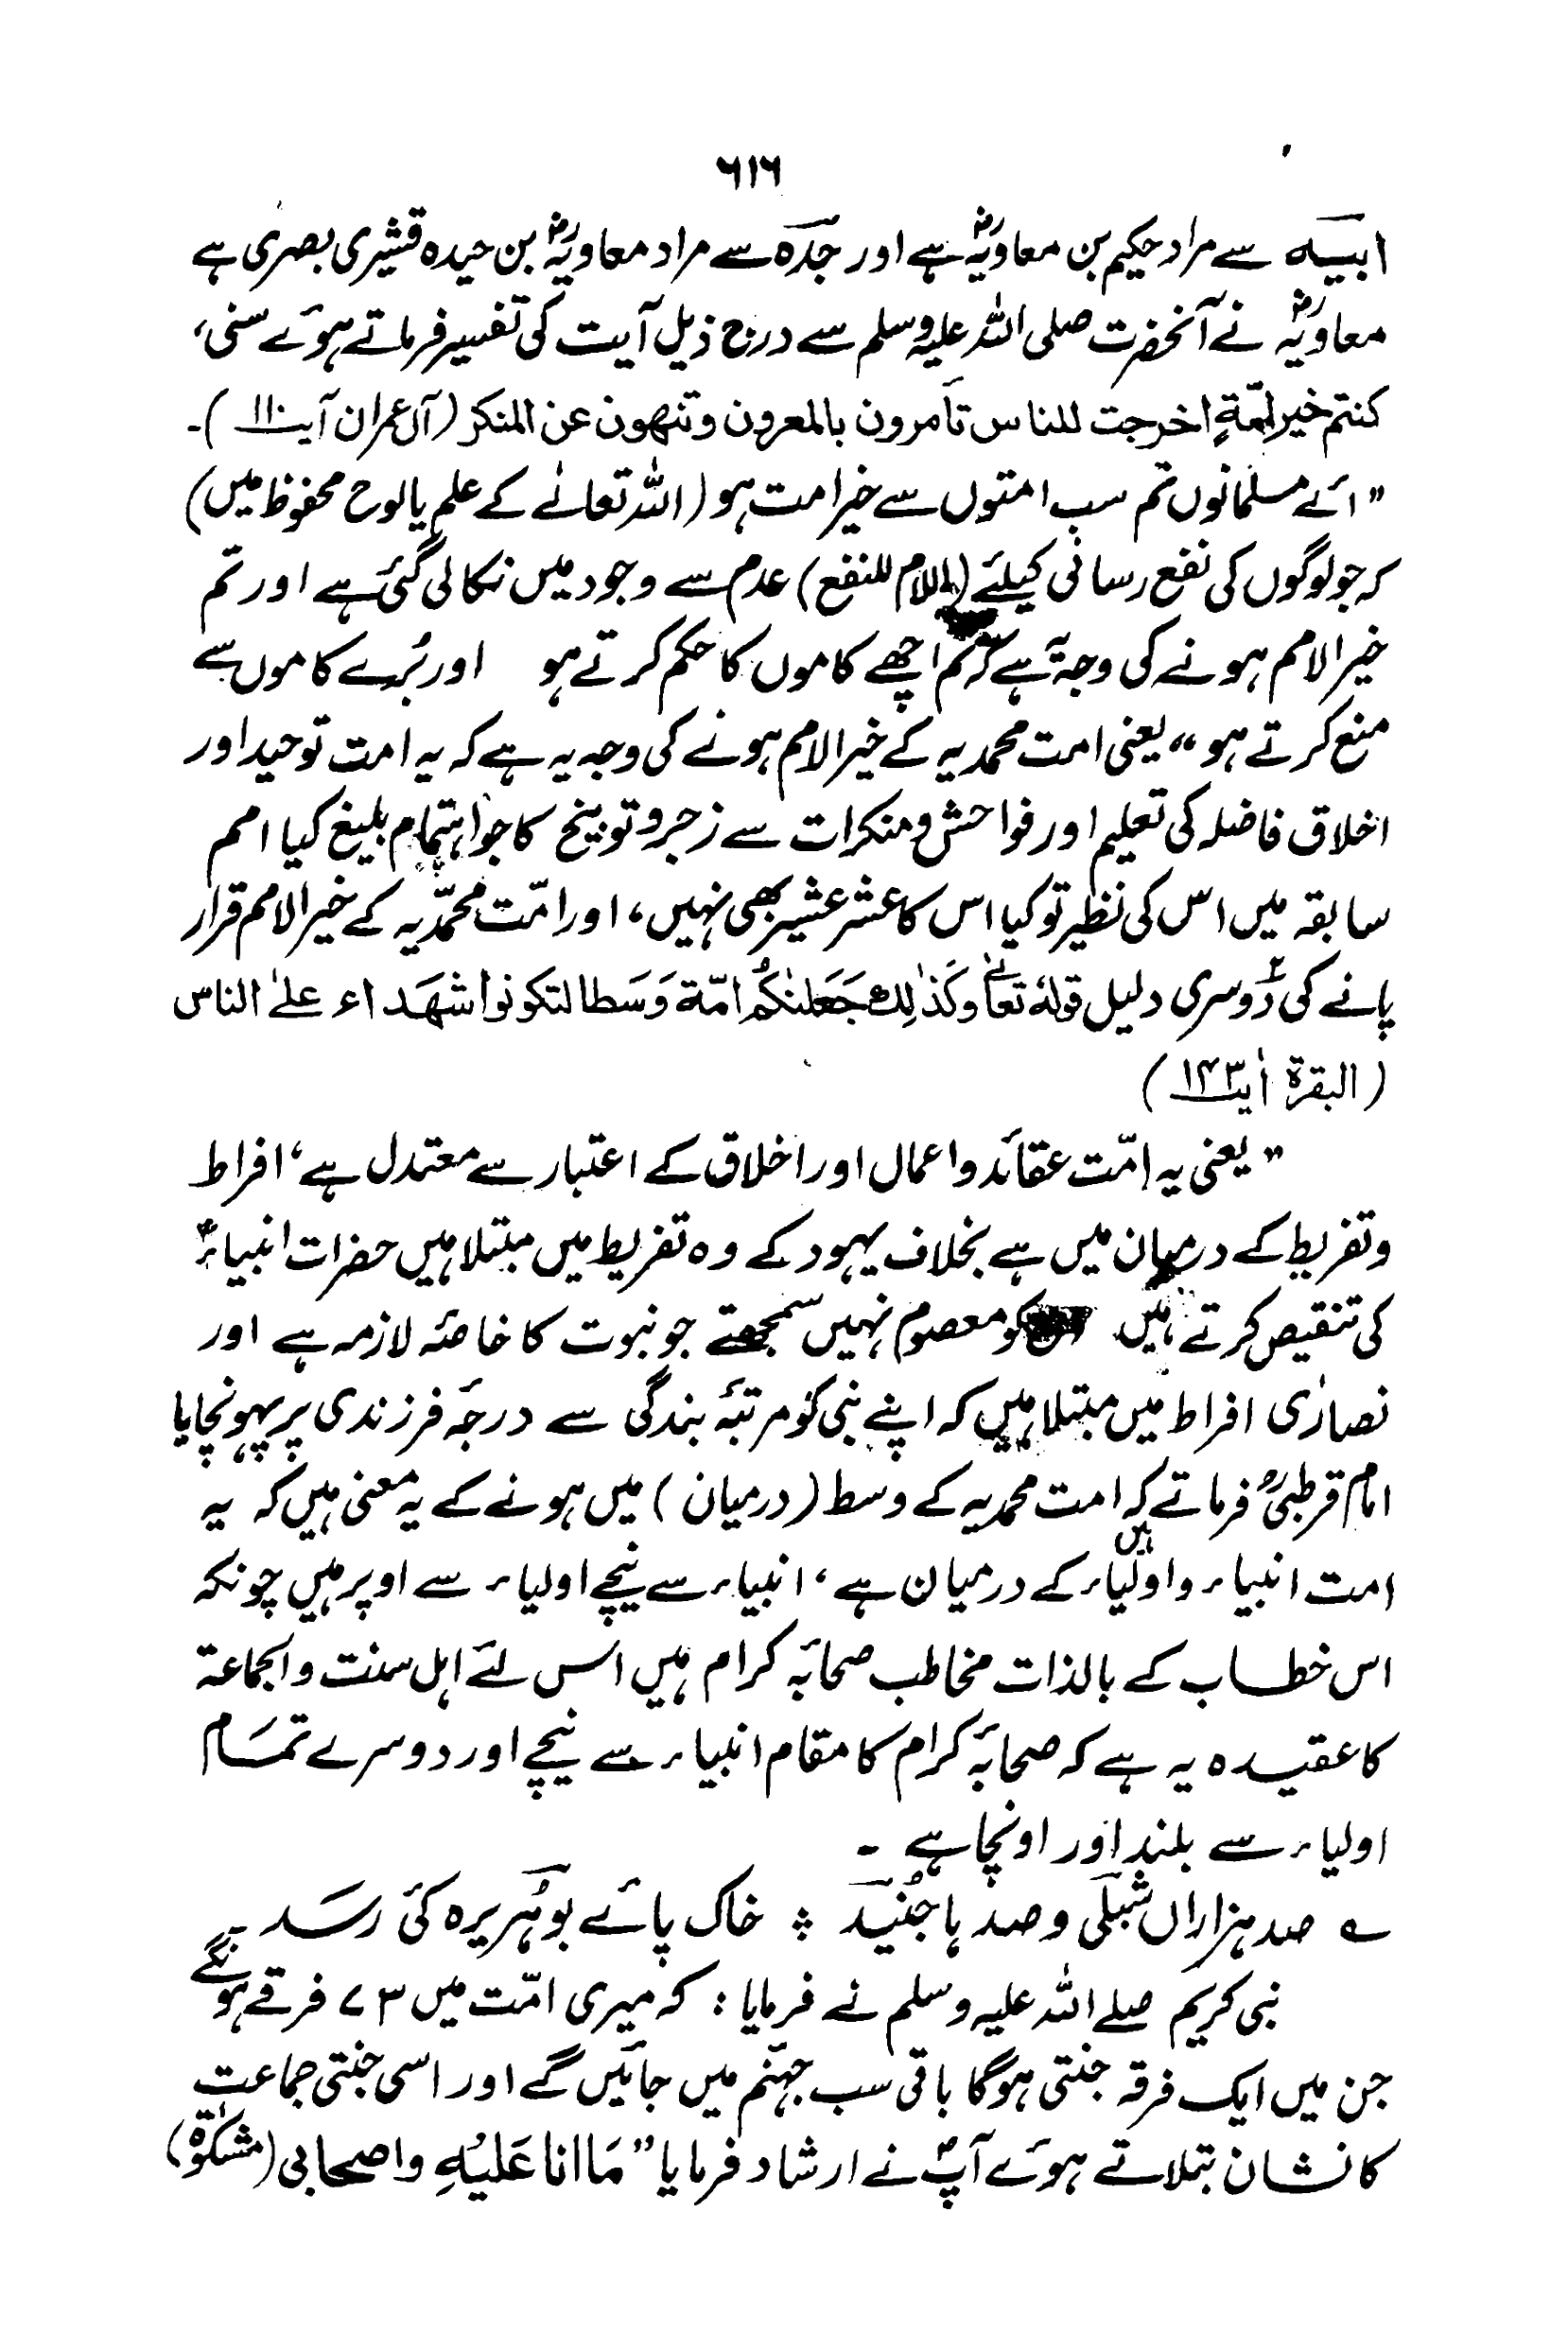 ۶۱۶
ابیہ سے مراد حکیم بن معاویہؓ ہے اور جدہ سے مراد معاویہؓ بن حیدہ قشیری بصری ہے
معاویہؓ نے آنحضرت صلی اللہ علیہ وسلم سے درج ذیل آیت کی تفسیر فرماتے ہوئے سنی،
کنتم خیر امّةٍ اخرجت للناس تأمرون بالمعروف وتنھون عن المنکر (آل عمران آیت ۱۱۰)۔
”ائے مسلمانوں تم سب امتوں سے خیر امت ہو (اللہ تعالےٰ کے علم یا لوح محفوظ میں)
کہ جو لوگوں کی نفع رسانی کیلئے (اللام للنفع) عدم سے وجود میں نکالی گئی ہے اور تم
خیر الامم ہونے کی وجہ یہ ہے کہ تم اچھے کاموں کا حکم کرتے ہو اور بُرے کاموں سے
منع کرتے ہو“ یعنی امت محمدیہ کے خیر الامم ہونے کی وجہ یہ ہے کہ یہ امت توحید اور
اخلاق فاضلہ کی تعلیم اور فواحش ومنکرات سے زجر وتوبیخ کا جو اہتمام بلیغ کیا امم
سابقہ میں اس کی نظیر تو کیا اس کا عشر عشیر بھی نہیں، اور امّت محمّدیہ کے خیر الامم قرار
پانے کی دُوسری دلیل قولہٗ تعالےٰ وَکَذٰلِكَ جَعَلنٰکُم امّة وَسَطا لتکونوا شھَداء علیٰ الناس
(البقرة اٰیت ۱۴۳)
”یعنی یہ امّت عقائد واعمال اور اخلاق کے اعتبار سے معتدل ہے، افراط
وتفریط کے درمیان میں ہے بخلاف یہود کے وہ تفریط میں مبتلا ہیں حضرات انبیاءؑ
کی تنقیص کرتے ہیں کو معصوم نہیں سمجھتے جو نبوت کا خاصّہ لازمہ ہے اور
نصارٰی افراط میں مبتلا ہیں کہ اپنے نبی کو مرتبۂ بندگی سے درجۂ فرزندی پر پہونچایا
امام قرطبیؒ فرماتے ہیں کہ امت محمدیہ کے وسط (درمیان) میں ہونے کے یہ معنی ہیں کہ یہ
امت انبیاء و اولیاء کے درمیان ہے، انبیاء سے نیچے اولیاء سے اوپر ہیں چونکہ
اس خطاب کے بالذات مخاطب صحابہ کرام ہیں اس لئے اہل سنت والجماعة
کا عقیدہ یہ ہے کہ صحابہ کرام کا مقام انبیاء سے نیچے اور دوسرے تمَام
اولیاء سے بلند اور اونچا ہے ۔
؎ صد ہزاراں شبلی و صد ہا جُنَید ؞ خاک پائے بو ہُریرہ کَی رسَد
نبی کریم صلے اللہ علیہ وسلم نے فرمایا : کہ میری امّت میں ۷۳ فرقے ہونگے
جن میں ایک فرقہ جنتی ہوگا باقی سب جہنّم میں جائیں گے اور اسی جنتی جماعت
کا نشان بتلاتے ہوئے آپؐ نے ارشاد فرمایا ”مَا انا عَلیْهِ واصحابی (مشکوٰة)